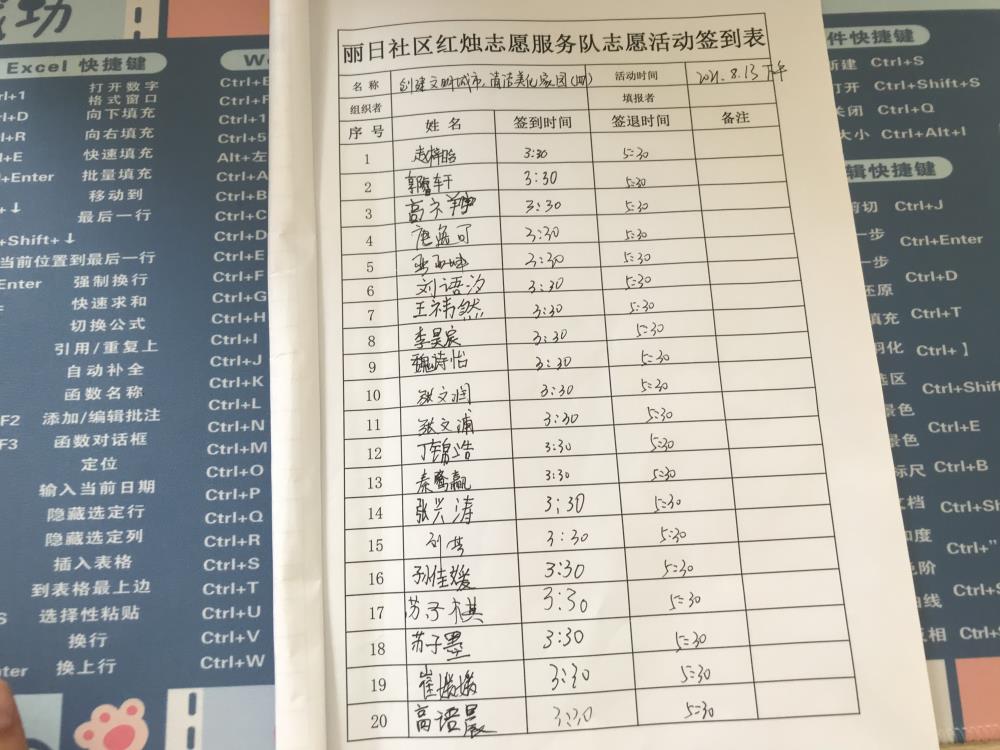 成功
Excel 快捷键
Ctrl+1 打开数字
格式窗口
Ctrl+D 向下填充
Ctrl+R 向右填充
Ctrl+E 快速填充
Ctrl+Enter 批量填充
移动到
最后一行
Ctrl+Shift+↓
当前位置到最后一行
Enter 强制换行
快速求和
切换公式
引用/重复上
自动补全
函数名称
F2 添加/编辑批注
F3 函数对话框
定位
输入当前日期
隐藏选定行
隐藏选定列
插入表格
到表格最上边
选择性粘贴
换行
换上行
Ctrl+B
Ctrl+C
Ctrl+D
Ctrl+E
Ctrl+F
Ctrl+G
Ctrl+H
Ctrl+I
Ctrl+J
Ctrl+K
Ctrl+L
Ctrl+N
Ctrl+M
Ctrl+O
Ctrl+P
Ctrl+Q
Ctrl+R
Ctrl+S
Ctrl+T
Ctrl+U
Ctrl+V
Ctrl+W
丽日社区红烛志愿服务队志愿活动签到表
名称 创建文明城市,清洁美化家园(四) 活动时间 2021.8.13 下午
组织者 填报者
序号 姓名 签到时间 签退时间 备注
1 赵梓晗 3:30 5:30
2 轩 3:30 5:30
3 高 3:30 5:30
4 可 3:30 5:30
5 3:30 5:30
6 刘语汐 3:30 5:30
7 王祎然 3:30 5:30
8 李昊宸 3:30 5:30
9 魏诗怡 3:30 5:30
10 张文润 3:30 5:30
11 张文浦 3:30 5:30
12 丁锦浩 3:30 5:30
13 秦 赢 3:30 5:30
14 张兴涛 3:30 5:30
15 3:30 5:30
16 孙佳媛 3:30 5:30
17 苏子棋 3:30 5:30
18 苏子墨 3:30 5:30
19 崔 3:30 5:30
20 高语晨 3:30 5:30
件快捷键
新建 Ctrl+S
打开 Ctrl+Shift+S
关闭 Ctrl+Q
大小 Ctrl+Alt+I
辑快捷键
剪切 Ctrl+J
一步 Ctrl+Enter
一步 Ctrl+D
还原
填充 Ctrl+T
羽化 Ctrl+】
选区 Ctrl+Shift
景色 Ctrl+E
景色
标尺 Ctrl+B
文档 Ctrl+Sh
和度 Ctrl+”
色阶 Ctrl+Alt
曲线 Ctrl+S
反相 Ctrl+S